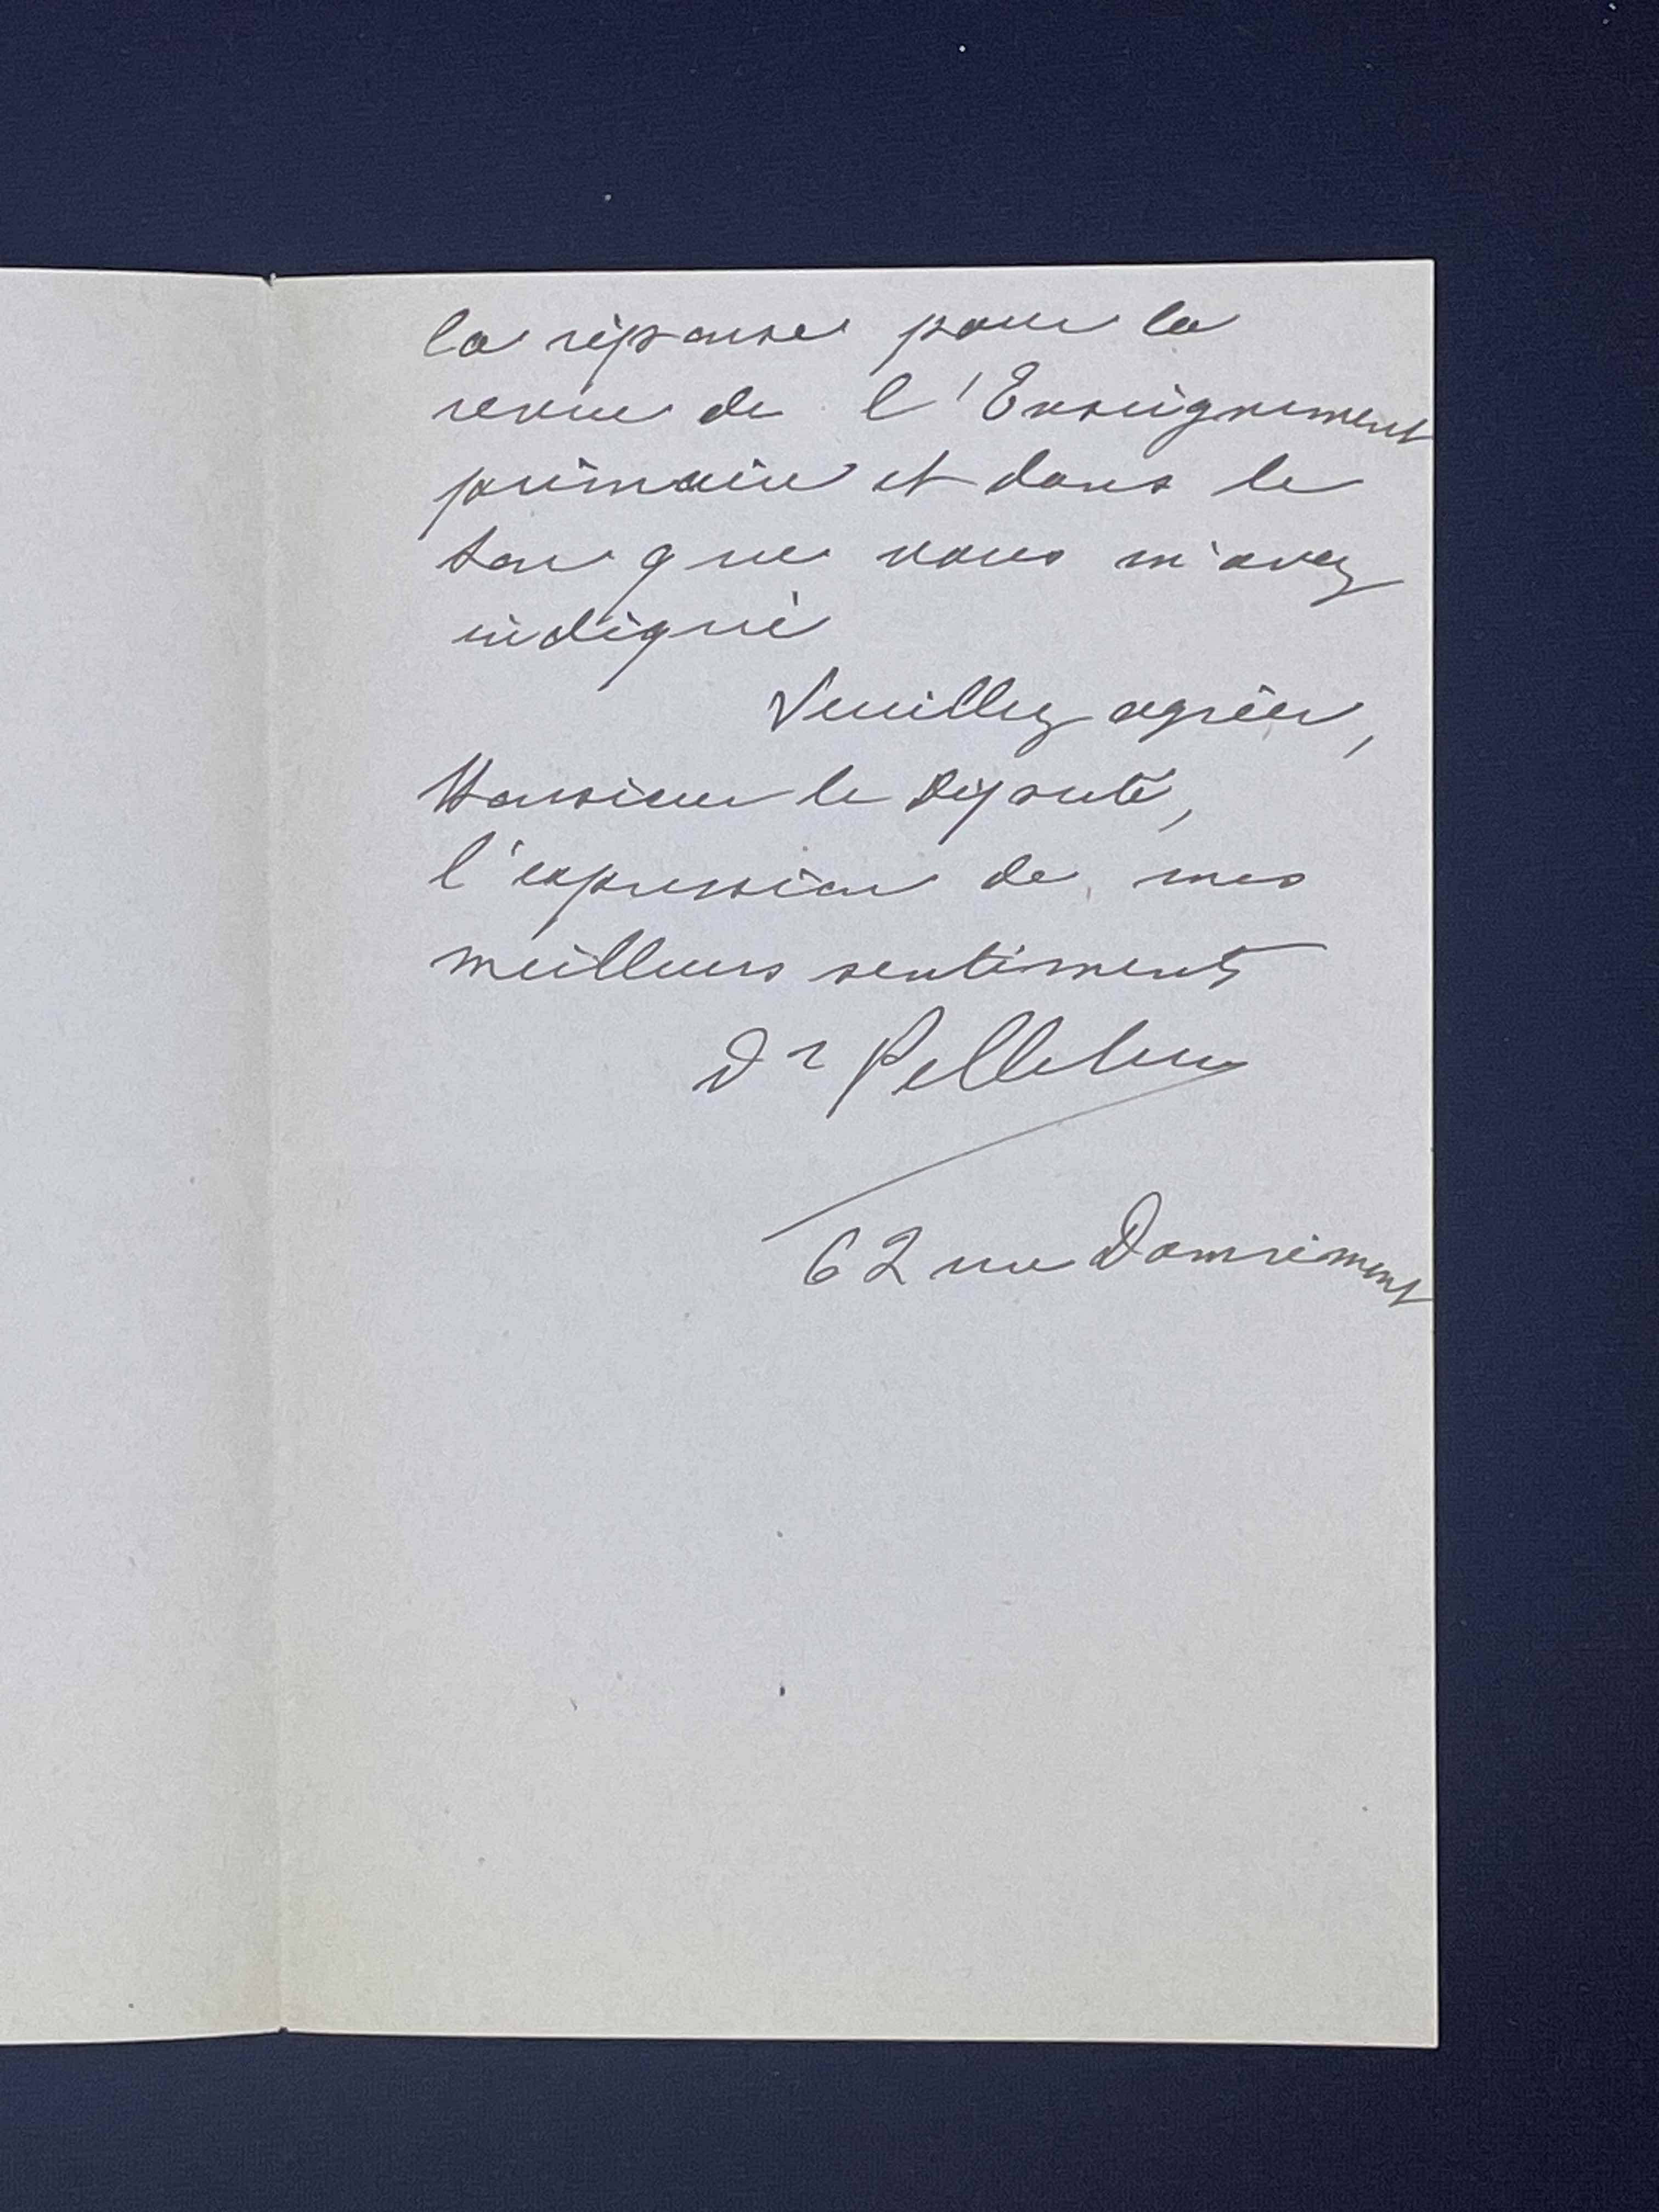 la réponse pour la
revue de l'Enseignement
primaire et dans le
ton que vous m'avez
indiqué
Veuillez agréer,
Monsieur le Député,
l'expression de mes
meilleurs sentiments
Dr Pelletier
62 rue Damrémont